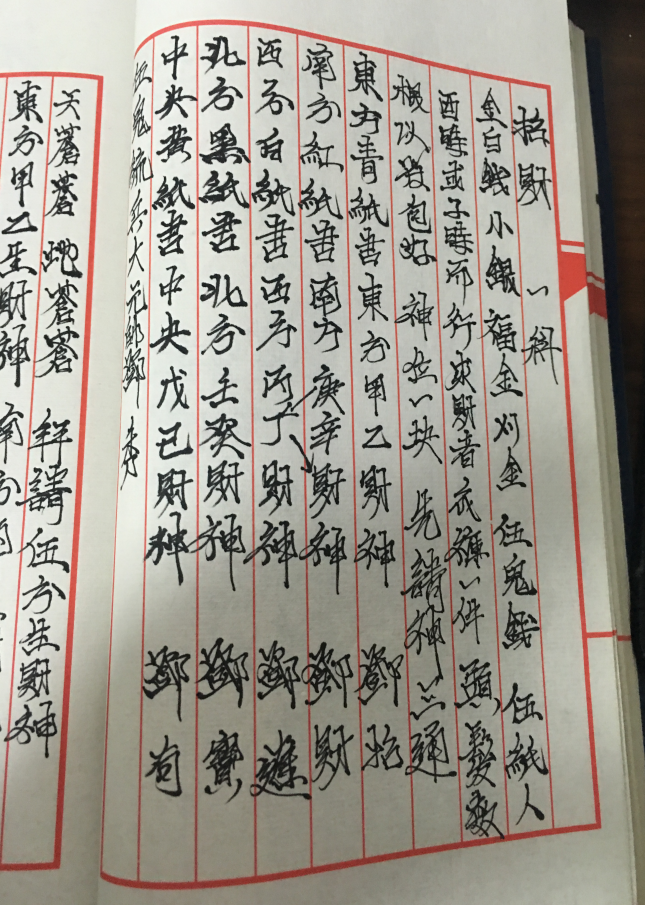 招財一科
金白錢小銀福金刈金伍鬼錢伍紙人
酉時或子時所行求財者衣褲一件頭髮數
根以發包好神在一块先請神一通
東方青紙書東方甲乙財神鄧招
南方紅紙書南方庚辛財神鄧財
西方白紙書西方丙丁財神鄧進
北方黑紙書北方壬癸財神鄧寶
中央黃紙書中央戊己財神鄧
伍鬼統兵大元帥鄧
天蒼蒼地蒼蒼拜請伍方生財神
東方甲乙生財神南方